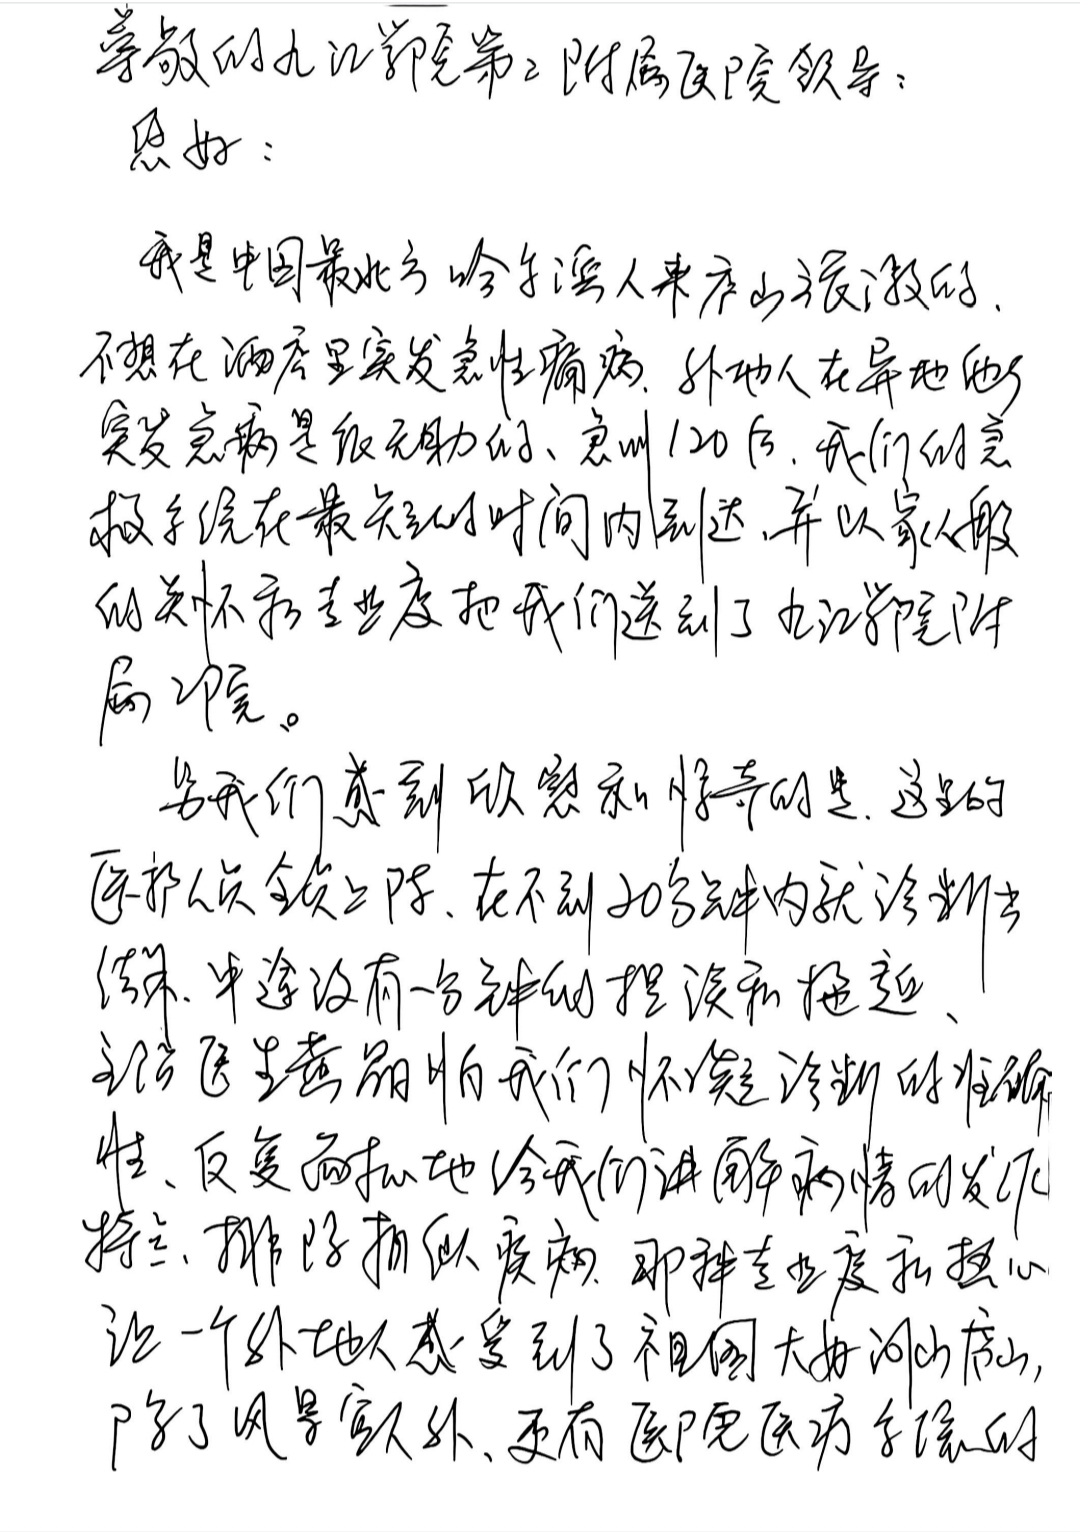 尊敬的九江学院第二附属医院领导：
您好：
我是中国最北方哈尔滨人来庐山旅游的、
不想在酒店里突发急性痛病、外地人在异地他乡
突发急病是很无助的、急叫120后、我们的急
救系统在最短的时间内到达、并以家人般
的关怀和专业度把我们送到了九江学院附
属2院。
另我们感到欣慰和惊奇的是、这里的
医护人员全员上阵、在不到20分钟内就诊断出
结果、中途没有一分钟的担误和拖延、
主治医生黄晶怕我们怀疑诊断的准确
性、反复而耐地给我们讲解病情的发作
特点、排除相似疾病、那种专业度和热心
让一个外地人感受到了祖国大好河山庐山，
除了风景宜人外、更有医院医疗系统的